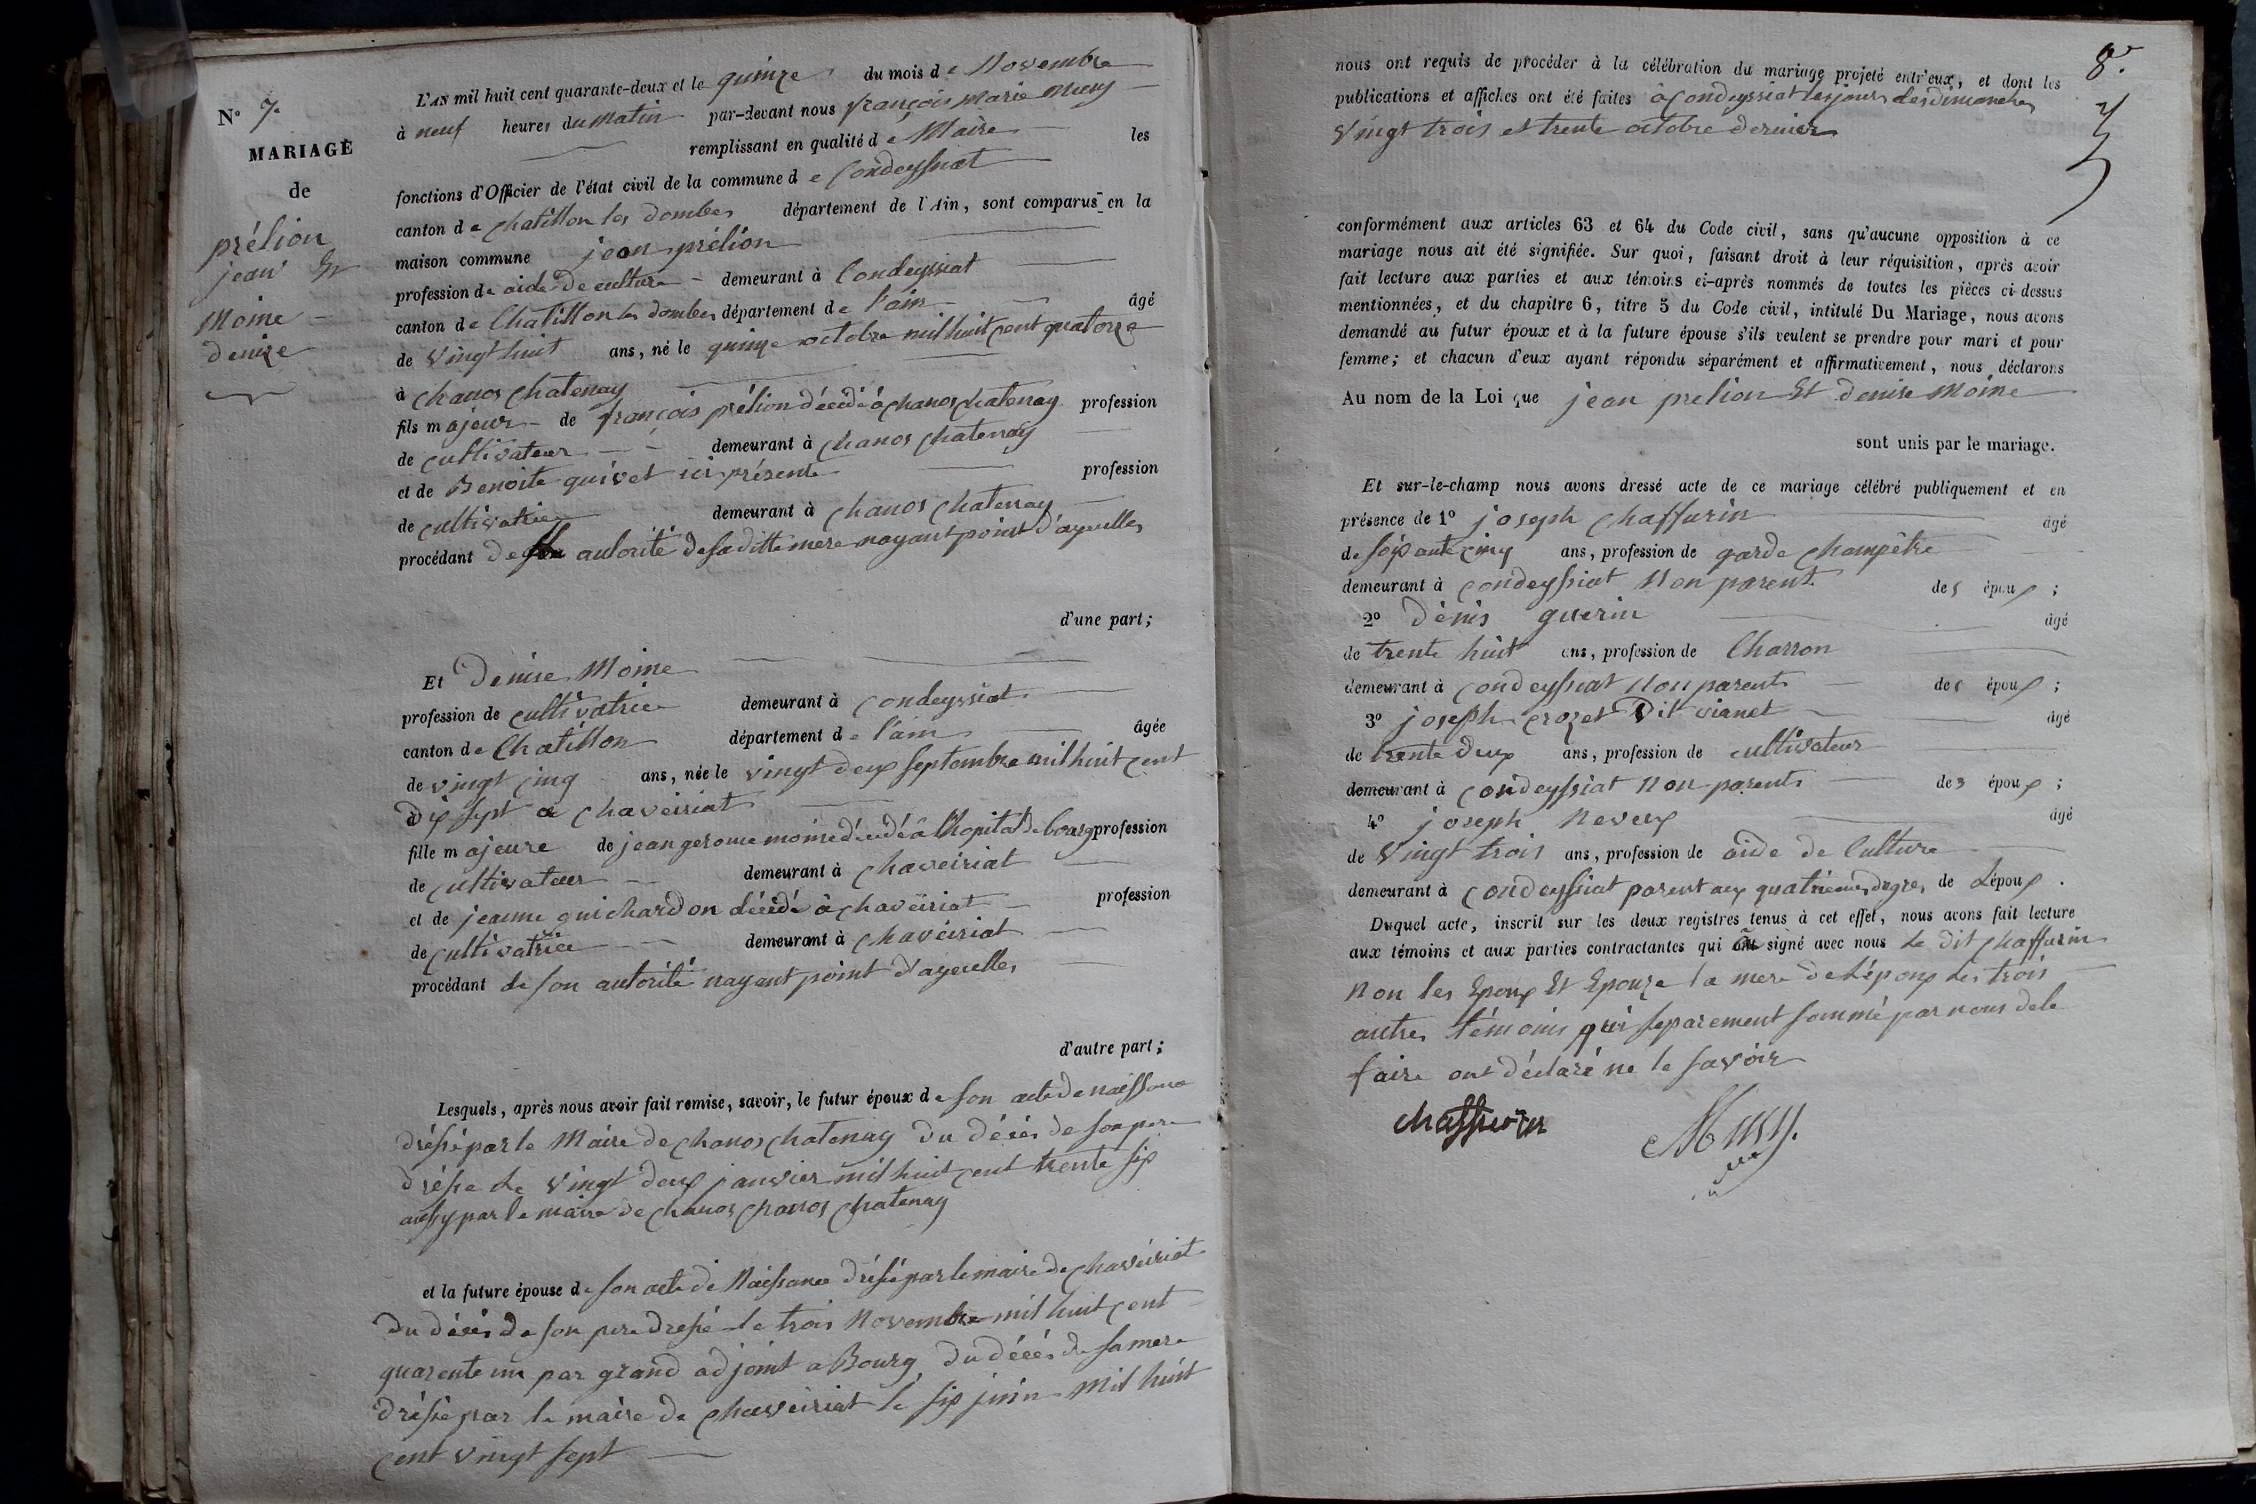 N° 7.
MARIAGE
de
prélion
jean Et
Moine
denize
L'AN mil huit cent quarante-deux et le quinze du mois de Novembre
à neuf heures du matin par-devant nous françois Marie Musy
remplissant en qualité de Maire les
fonctions d'Officier de l'état civil de la commune de Condeyssiat
canton de Chatillon les dombes département de l'Ain, sont comparus en la
maison commune jean prélion
profession de aide de culture demeurant à Condeyssiat
canton de Chatillon les dombes département de l'ain âgé
de vingt huit ans, né le quinze octobre mil huit cent quatorze
à Chanos Chatenay
fils majeur de françois prélion décédé à Chanos Chatenay profession
de cultivateur demeurant à Chanos Chatenay
et de Benoite quivet ici présente profession
de cultivatrice demeurant à Chanos Chatenay
procédant de autorité de sa ditte mere nayant point d'ayeulles
d'une part;
Et Denise Moine
profession de cultivatrice demeurant à Condeyssiat
canton de Chatillon département de l'ain âgée
de vingt cinq ans, née le vingt deux septembre mil huit cent
dix sept a Chaveiriat
fille majeure de jean gerome moine décédé â l'hopital de bourg profession
de cultivateur demeurant à Chaveiriat
et de jeanne guichardon décédé â chaveiriat profession
de cultivatrice demeurant à Chaveiriat
procédant de son autorité nayant point d'ayeulles
d'autre part;
Lesquels, après nous avoir fait remise, savoir, le futur époux de son acte de naissance
dréssé par le Maire de Chanos Chatenay du décés de son pere
drésse Le vingt deux janvier mil huit cent trente six
aussy par le maire de Chanos Chanos Chatenay
et la future épouse de son acte de Naissance dréssé par le maire de Chaveiriat
du décés de son pere dressé le trois Novembre mil huit cent
quarente un par grand adjoint a Bourg, du décés de sa mere
dréssé par le maire de Chaveiriat le six juin mil huit
cent vingt sept
8.
nous ont requis de procéder à la célébration du mariage projeté entr'eux, et dont les
publications et affiches ont été faites à Condeyssiat les jours des dimanches
vingt trois et trente octobre dernier
conformément aux articles 63 et 64 du Code civil, sans qu'aucune opposition à ce
mariage nous ait été signifiée. Sur quoi, faisant droit à leur réquisition, après avoir
fait lecture aux parties et aux témoins ci-après nommés de toutes les pièces ci-dessus
mentionnées, et du chapitre 6, titre 5 du Code civil, intitulé Du Mariage, nous avons
demandé au futur époux et à la future épouse s'ils veulent se prendre pour mari et pour
femme; et chacun d'eux ayant répondu séparément et affirmativement, nous déclarons
Au nom de la Loi que jean prelion Et denise Moine
sont unis par le mariage.
Et sur-le-champ nous avons dressé acte de ce mariage célébré publiquement et en
présence de 1° joseph Chaffurin âgé
de soixante cinq ans, profession de garde Champêtre
demeurant à Condeyssiat Non parent des époux;
2° Dénis guerin âgé
de trente huit ans, profession de Charron
demeurant à Condeyssiat Non parents des époux;
3° joseph Crozet Dit vianet âgé
de trente deux ans, profession de cultivateur
demeurant à Condeyssiat Non parents des époux;
4° joseph Neveux âgé
de vingt trois ans, profession de aide de Culture
demeurant à Condeyssiat parent aux quatrieme dugres de Lépoux.
Duquel acte, inscrit sur les deux registres tenus à cet effet, nous avons fait lecture
aux témoins et aux parties contractantes qui signé avec nous Le dit Chaffurin
Non les Epoux Et Epouze la mere de Lépoux Les trois
autres témoins qui separement sommé par nous de le
faire ont déclaré ne le savoir
chaffurin
Musy.